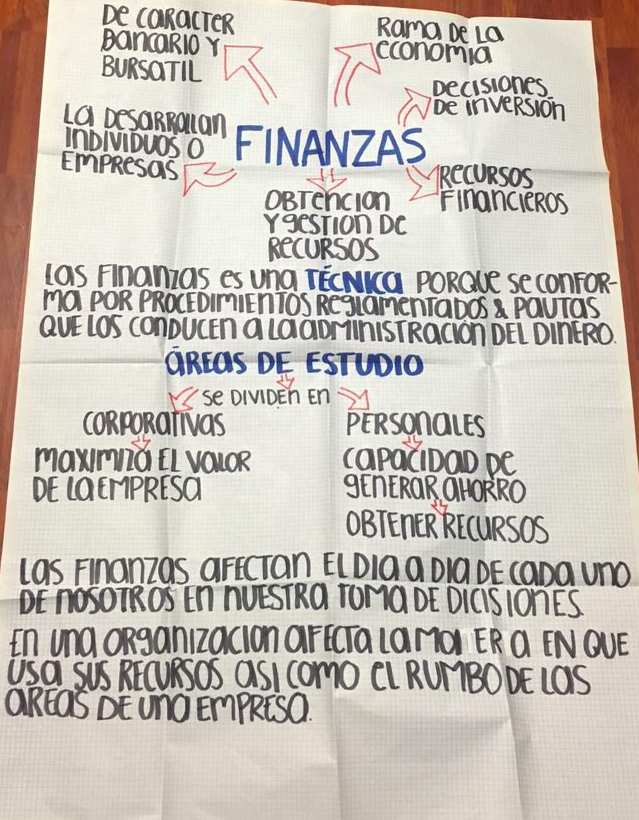 DE CARACTER
BANCARIO Y
BURSATIL
RAMA DE LA
ECONOMIA
DECISIONES
DE INVERSIÓN
LA DESARROLLAN
INDIVIDUOS O
EMPRESAS
FINANZAS
RECURSOS
FINANCIEROS
OBTENCION
Y GESTION DE
RECURSOS
LAS FINANZAS ES UNA TÉCNICA PORQUE SE CONFOR-
MA POR PROCEDIMIENTOS REGLAMENTADOS & PAUTAS
QUE LOS CONDUCEN A LA ADMINISTRACIÓN DEL DINERO.
ÁREAS DE ESTUDIO
SE DIVIDEN EN
CORPORATIVAS
MAXIMIZA EL VALOR
DE LA EMPRESA
PERSONALES
CAPACIDAD DE
GENERAR AHORRO
OBTENER RECURSOS
LAS FINANZAS AFECTAN EL DIA A DIA DE CADA UNO
DE NOSOTROS EN NUESTRA TOMA DE DICISIONES.
EN UNA ORGANIZACION AFECTA LA MANERA EN QUE
USA SUS RECURSOS ASI COMO EL RUMBO DE LAS
AREAS DE UNA EMPRESA.